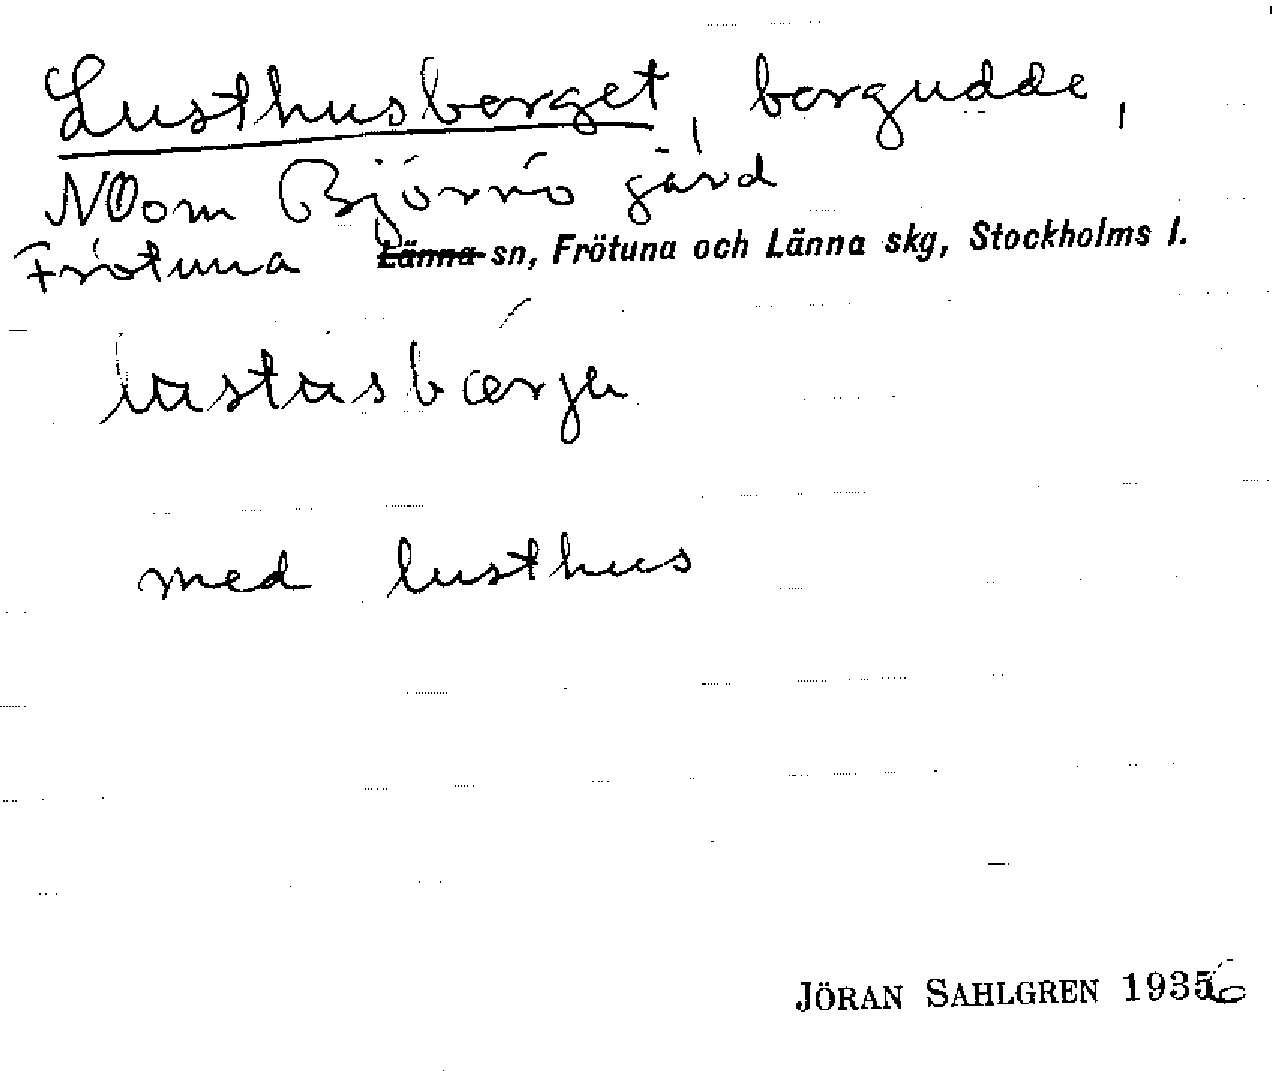 Lusthusberget, bergudde,
NO om Björnö gård
Frötuna Länna sn, Frötuna och Länna skg, Stockholms l.
lustusbærjə
med lusthus
JÖRAN SAHLGREN 1936